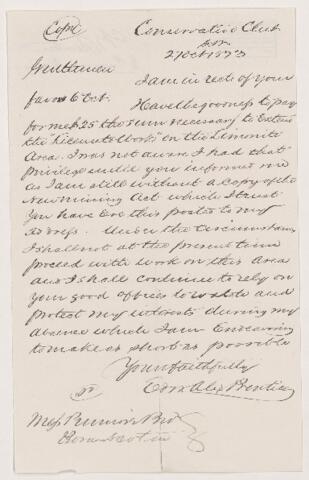 Copy
Conservative Club
S.W.
27 Oct 1873
Gentlemen
I am in rect of your
favor 6 Oct.
Have the goodness to pay
for me $25 the sum necessary to Extend
the "License to Work" on the Limonite
Area. I was not aware I had that
privilege until you informed me
as I am still without a copy of the
New Mining Act which I trust
you have ere this posted to my
address. Under the circumstances
I shall not at the present time
proceed with work on this Area
and I shall continue to rely on
your good offices to watch and
protect my interests during my
absence which I am Endeavoring
to make as short as possible
Yours faithfully
Alex Prentice
Mess Bros
Nova Scotia